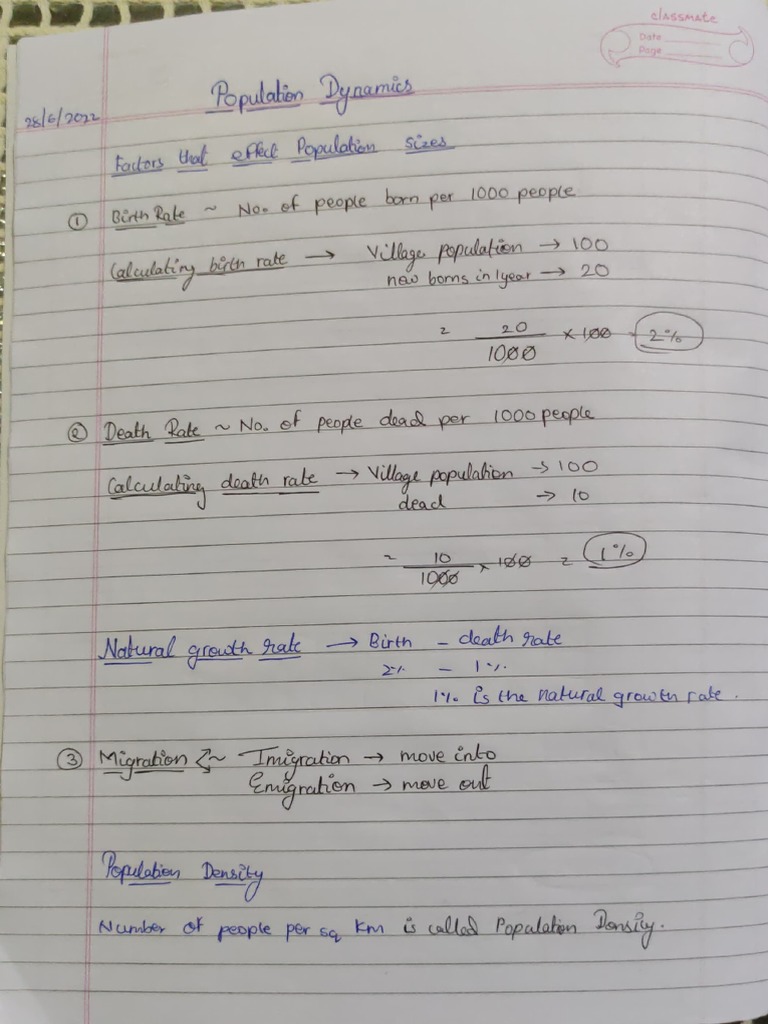 classmate
Date
Page
28/6/2022
Population Dynamics
Factors that effect Population sizes
① Birth Rate ~ No. of people born per 1000 people
Calculating birth rate → Village population → 100
new borns in 1 year → 20
= 20/1000 × 100 = 2%
② Death Rate ~ No. of people dead per 1000 people
Calculating death rate → Village population → 100
dead → 10
= 10/1000 × 100 = 1%
Natural growth rate → Birth - death rate
2% - 1%
1% is the natural growth rate.
③ Migration ~ Imigration → move into
Emigration → move out
Population Density
Number of people per sq km is called Population Density.